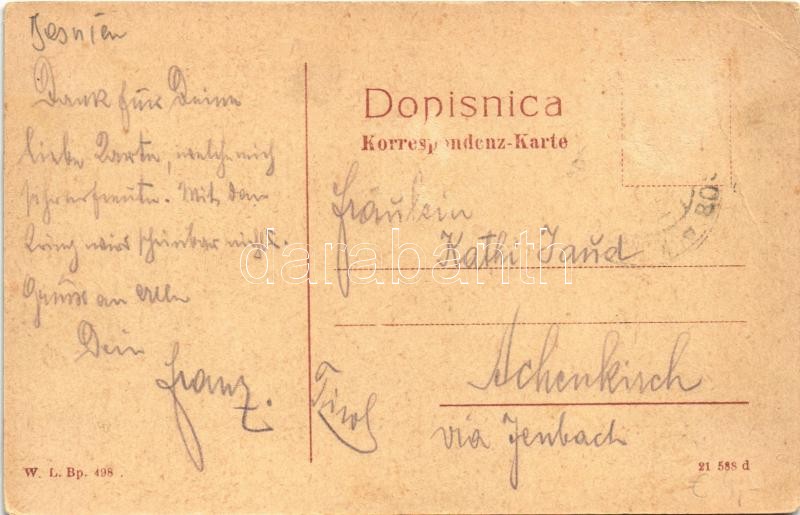 Bosnien
Dank für Deine
liebe Karte, welche mich
sehr erfreute. Mit dem
Krieg wird scheinbar nichts.
Gruss an Alle
Dein
Franz.
Dopisnica
Korrespondenz-Karte
Fräulein
Kathi Jaud
Achenkirch
Tirol
via Jenbach
W. L. Bp. 498.
21 588 d
darabanth